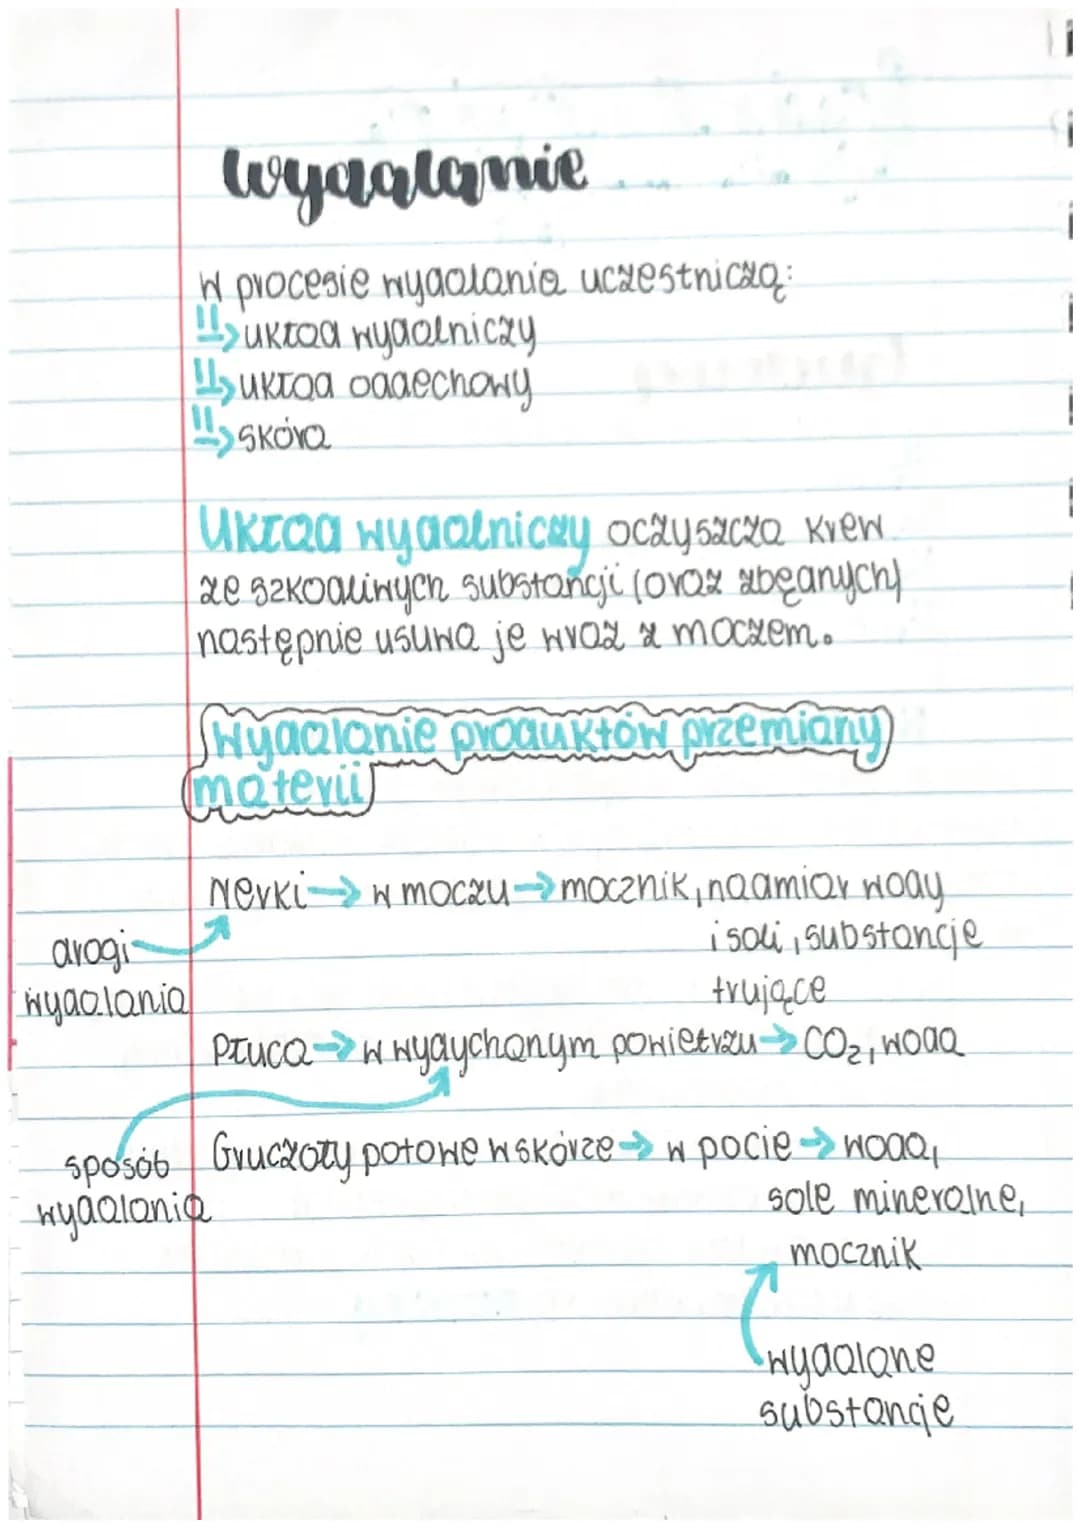 Wydalanie
W procesie wydalania uczestniczą:
układ wydalniczy
układ oddechowy
skóra
Układ wydalniczy oczyszcza krew
ze szkodliwych substancji (oraz zbędnych)
następnie usuwa je wraz z moczem.
Wydalanie produktów przemiany
materii
Nerki → w moczu → mocznik, nadmiar wody
i soli, substancje
trujące
drogi
wydalania
Płuca → w wydychanym powietrzu → CO₂, woda
Gruczoły potowe w skórze → w pocie → woda,
sole mineralne,
mocznik
sposób
wydalania
wydalane
substancje